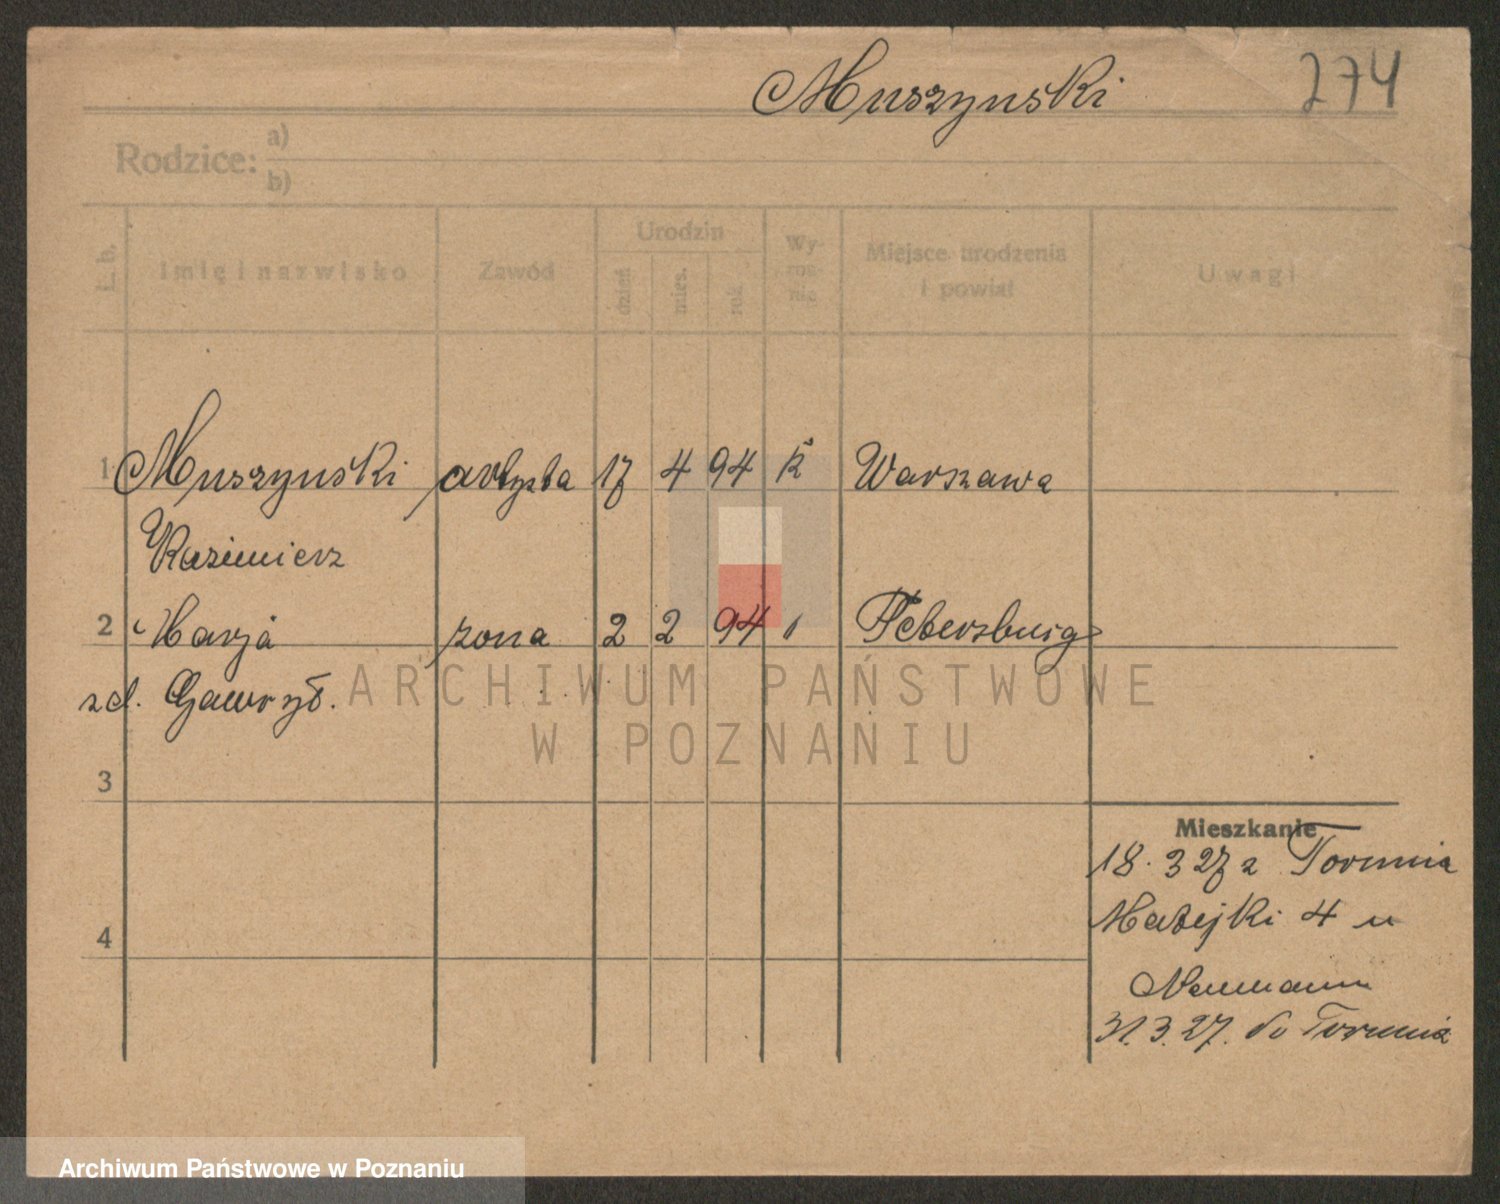 Muszynski 274
Rodzice: a)
b)
L. b. Imię i nazwisko Zawód Urodzin dzień mies. rok Wyznanie Miejsce urodzenia i powiat Uwagi
1 Muszynski artysta 17 4 94 k Warszawa
Kazimierz
2 Marja żona 2 2 94 Petersburg
zd. Gawrył.
ARCHIWUM PAŃSTWOWE
W POZNANIU
3
Mieszkanie
18. 3 27 z Torunia
Matejki 4 u
4
Neumann
31. 3. 27. do Torunia
Archiwum Państwowe w Poznaniu